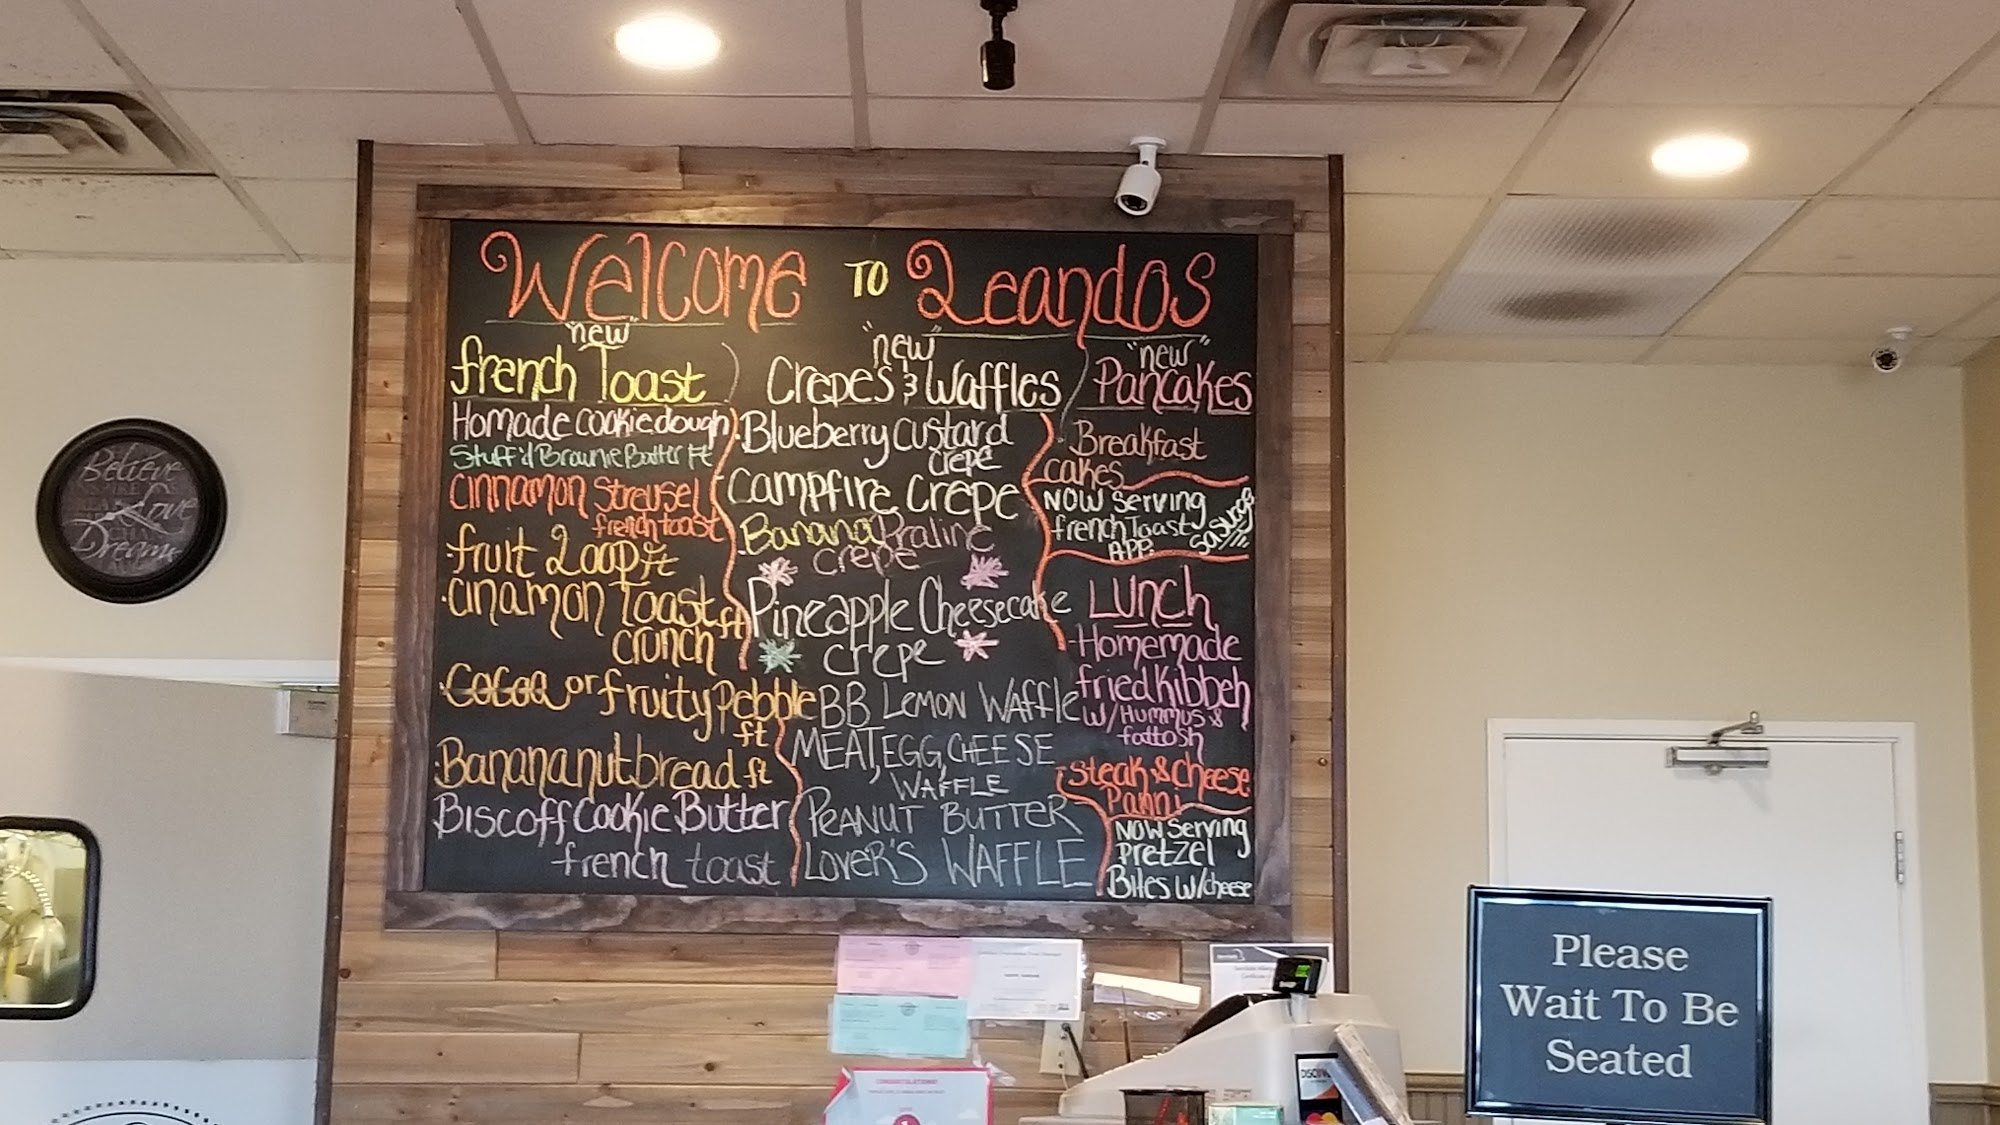 Welcome TO Leandos
"new"
french Toast
Homade cookiedough
Stuff'd Brownie Batter ft
cinnamon streusel
french toast
fruit Loop ft
·cinamon Toast ft
crunch
·Cocoa or fruity Pebble
ft
·Banana nut bread ft
Biscoff Cookie Butter
french toast
"new"
Crepes & Waffles
·Blueberry custard
crepe
Campfire Crepe
Banana Praline
crepe
Pineapple Cheesecake
crepe
BB Lemon Waffle
MEAT, EGG, CHEESE
WAFFLE
PEANUT BUTTER
LOVER'S WAFFLE
"new"
Pancakes
Breakfast
cakes
NOW Serving
french Toast
APP.
Lunch
Homemade
fried Kibbeh
w/ Hummus &
fattosh
Steak & cheese
Panni
NOW Serving
Pretzel
Bites w/cheese
Believe
Love
Dreams
Please
Wait To Be
Seated
CONGRATULATIONS!
DISCOVER